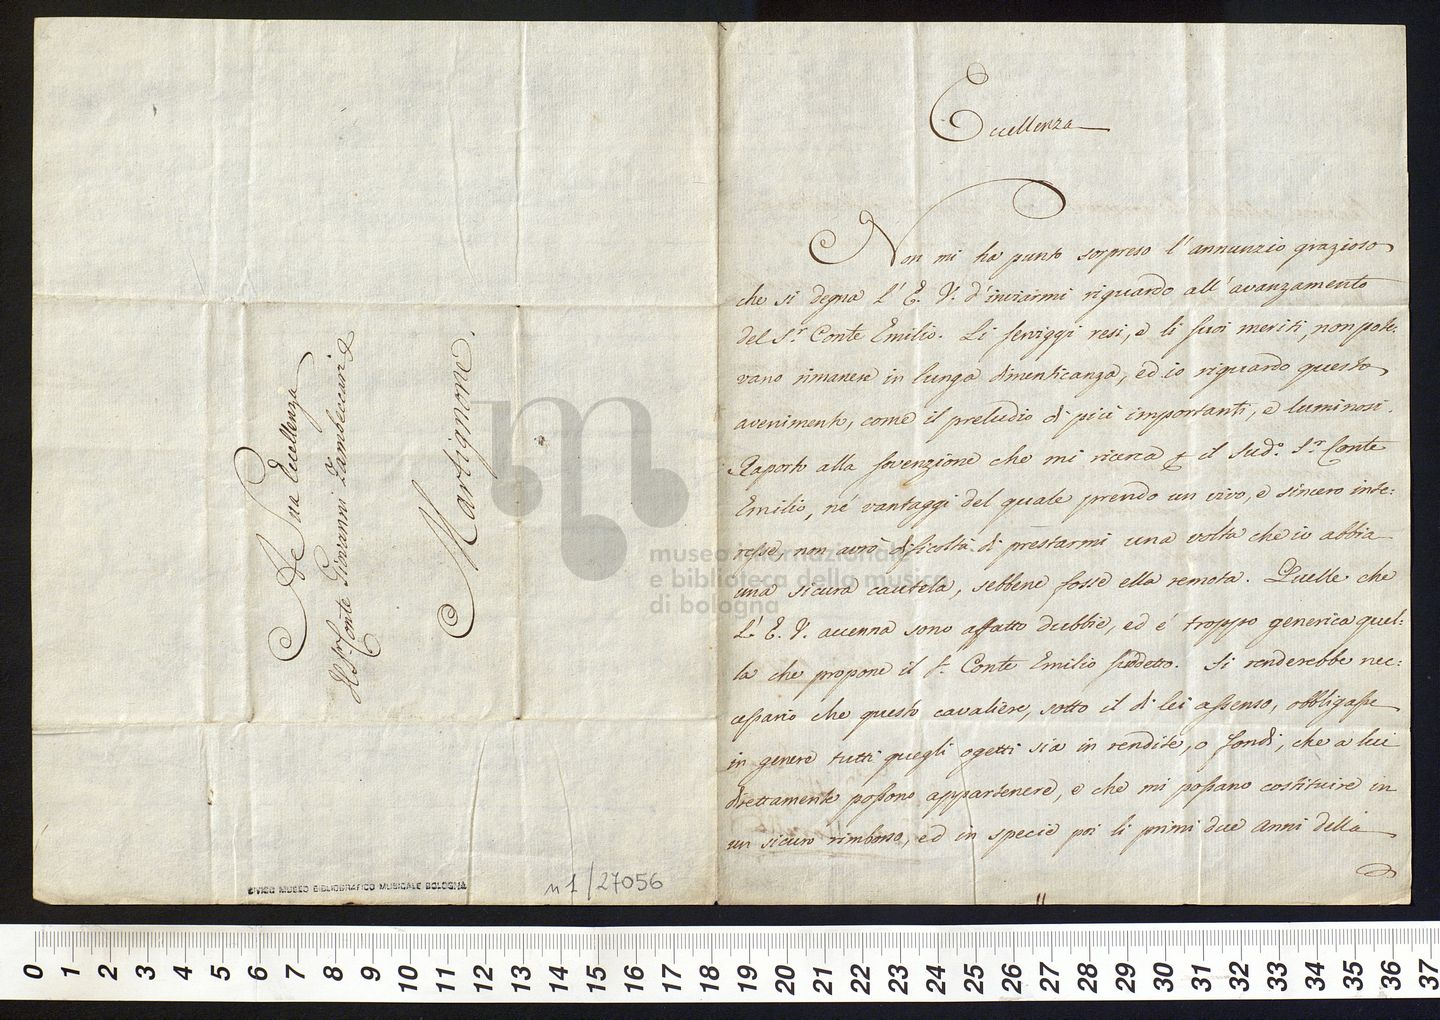 A Sua Eccellenza
Il Sr. Conte Giovanni Zambeccari
Martignone.
CIVICO MUSEO BIBLIOGRAFICO MUSICALE BOLOGNA
n 1/27056
Eccellenza
Non mi ha punto sorpreso l'annunzio grazioso
che si degna l'E. V. d'inviarmi riguardo all'avanzamento
del Sr. Conte Emilio. Li serviggi resi, e li suoi meriti, non pote:
vano rimanere in lunga dimenticanza, ed io riguardo questo
avenimento, come il preludio di più importanti, e luminosi.
Raporto alla sovenzione che mi ricerca il Sudo. Sr. Conte
Emilio, né vantaggi del quale prendo un vivo, e sincero inte:
resse, non avrò dificoltà di prestarmi una volta che io abbia
una sicura cautela, sebbene fosse ella remota. Quelle che
L'E. V. accenna sono affatto dubbie, ed é troppo generica quel:
la che propone il Sr. Conte Emilio suddetto. Si renderebbe nec:
cessario che questo cavaliere, sotto il di lei assenso, obbligasse
in genere tutti quegli ogetti sia in rendite, o fondi, che a lui
direttamente possono appartenere, e che mi possano costituire in
un sicuro rimborso, ed in specie poi li primi due anni della
museo internazionale
e biblioteca della musica
di bologna
0 1 2 3 4 5 6 7 8 9 10 11 12 13 14 15 16 17 18 19 20 21 22 23 24 25 26 27 28 29 30 31 32 33 34 35 36 37